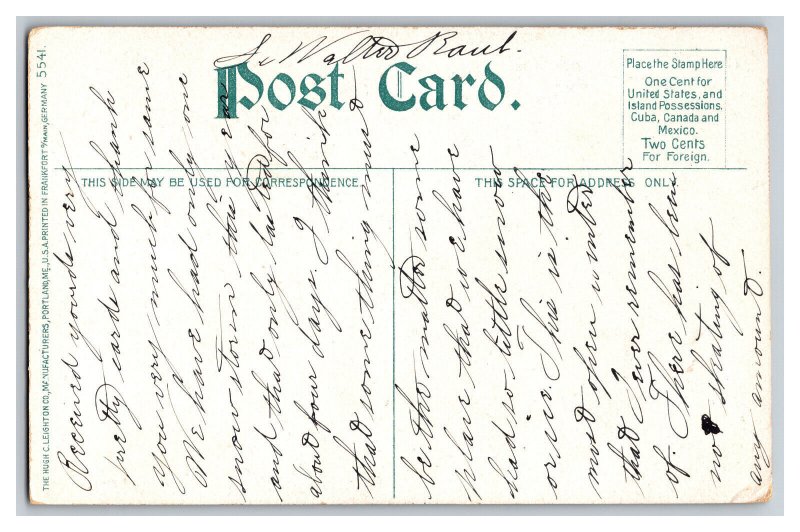 To Walter Raub.
Post Card.
Place the Stamp Here
One Cent for
United States, and
Island Possessions.
Cuba, Canada and
Mexico.
Two Cents
For Foreign.
THIS SIDE MAY BE USED FOR CORRESPONDENCE.
THIS SPACE FOR ADDRESS ONLY.
THE HUGH C. LEIGHTON CO., MANUFACTURERS, PORTLAND, ME., U.S.A. PRINTED IN FRANKFORT o/MAIN, GERMANY 5541.
Received yourde very
pretty carde and thank
you very much for same
We have had only one
snow storm this year
and that only lasted for
about four days. I think
that some thing must
be the matter some
place that we have
had so little snow
or ice. This is the
most open winter
that I ever remember
of. There has been
no skating of
any amount.